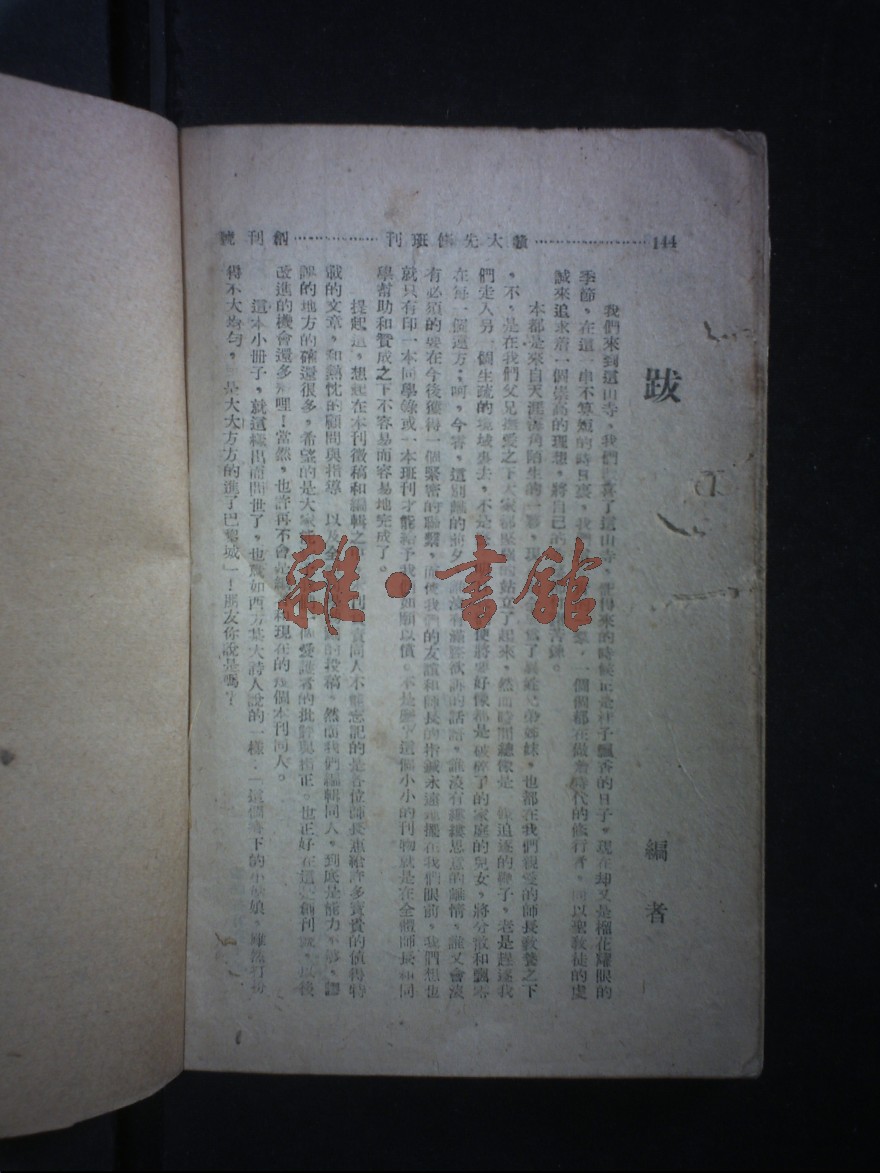 144……………大先修班刊……………創刊號
跋
編者
我們來到這山寺,我們喜了這山寺,記得來的時候正是桂子飄香的日子,現在却又是榴花耀眼的
季節,在這一串不算短的時日裏,我們,一個個都在做着時代的修行者,而以聖教徒的虔
誠來追求着一個崇高的理想,將自己的苦鍊。
本都是來自天涯海角陌生的一羣,現爲了異姓兄弟姊妹,也都在我們親愛的師長教養之下
,不,是在我們父兄撫愛之下大家都堅強的站立了起來,然而時間總像是一條追逐的鞭子,老是趕逐我
們走入另一個生疏的境域裏去,不是便將要好像都是破碎了的家庭的兒女,將分散和飄零
在每一個遠方;啊,今宵,這別離的前夕,誰沒有滿懷欲訴的話語,誰沒有縷縷思意的離情,誰又會沒
有必須的要在今後獲得一個緊密的聯繫,而使我們的友誼和師長的指鍼永遠地擺在我們眼前,我們想也
就只有印一本同學錄或一本班刊才能給予我如願以償。不是麼?這個小小的刊物就是在全體師長和同
學幫助和贊成之下不容易而容易地完成了。
提起這,想起在本刊徵稿和編輯之中,刊負責同人不能忘記的是各位師長惠給許多寶貴的值得特
載的文章,和熱忱的顧問與指導,以及全的投稿,然而我們編輯同人,到底是能力不夠,謬
誤的地方的確還很多,希望的是大家愛護者的批評與指正。也正好在這是創刊號,以後
改進的機會還多着哩!當然,也許再不會是現在的幾個本刊同人。
這本小冊子,就這樣出而問世了,也真如西方某大詩人說的一樣:「這個鄉下的小姑娘,雖然打扮
得不大均勻,是大大方方的進了巴黎城」!朋友你說是嗎?
雜·書館